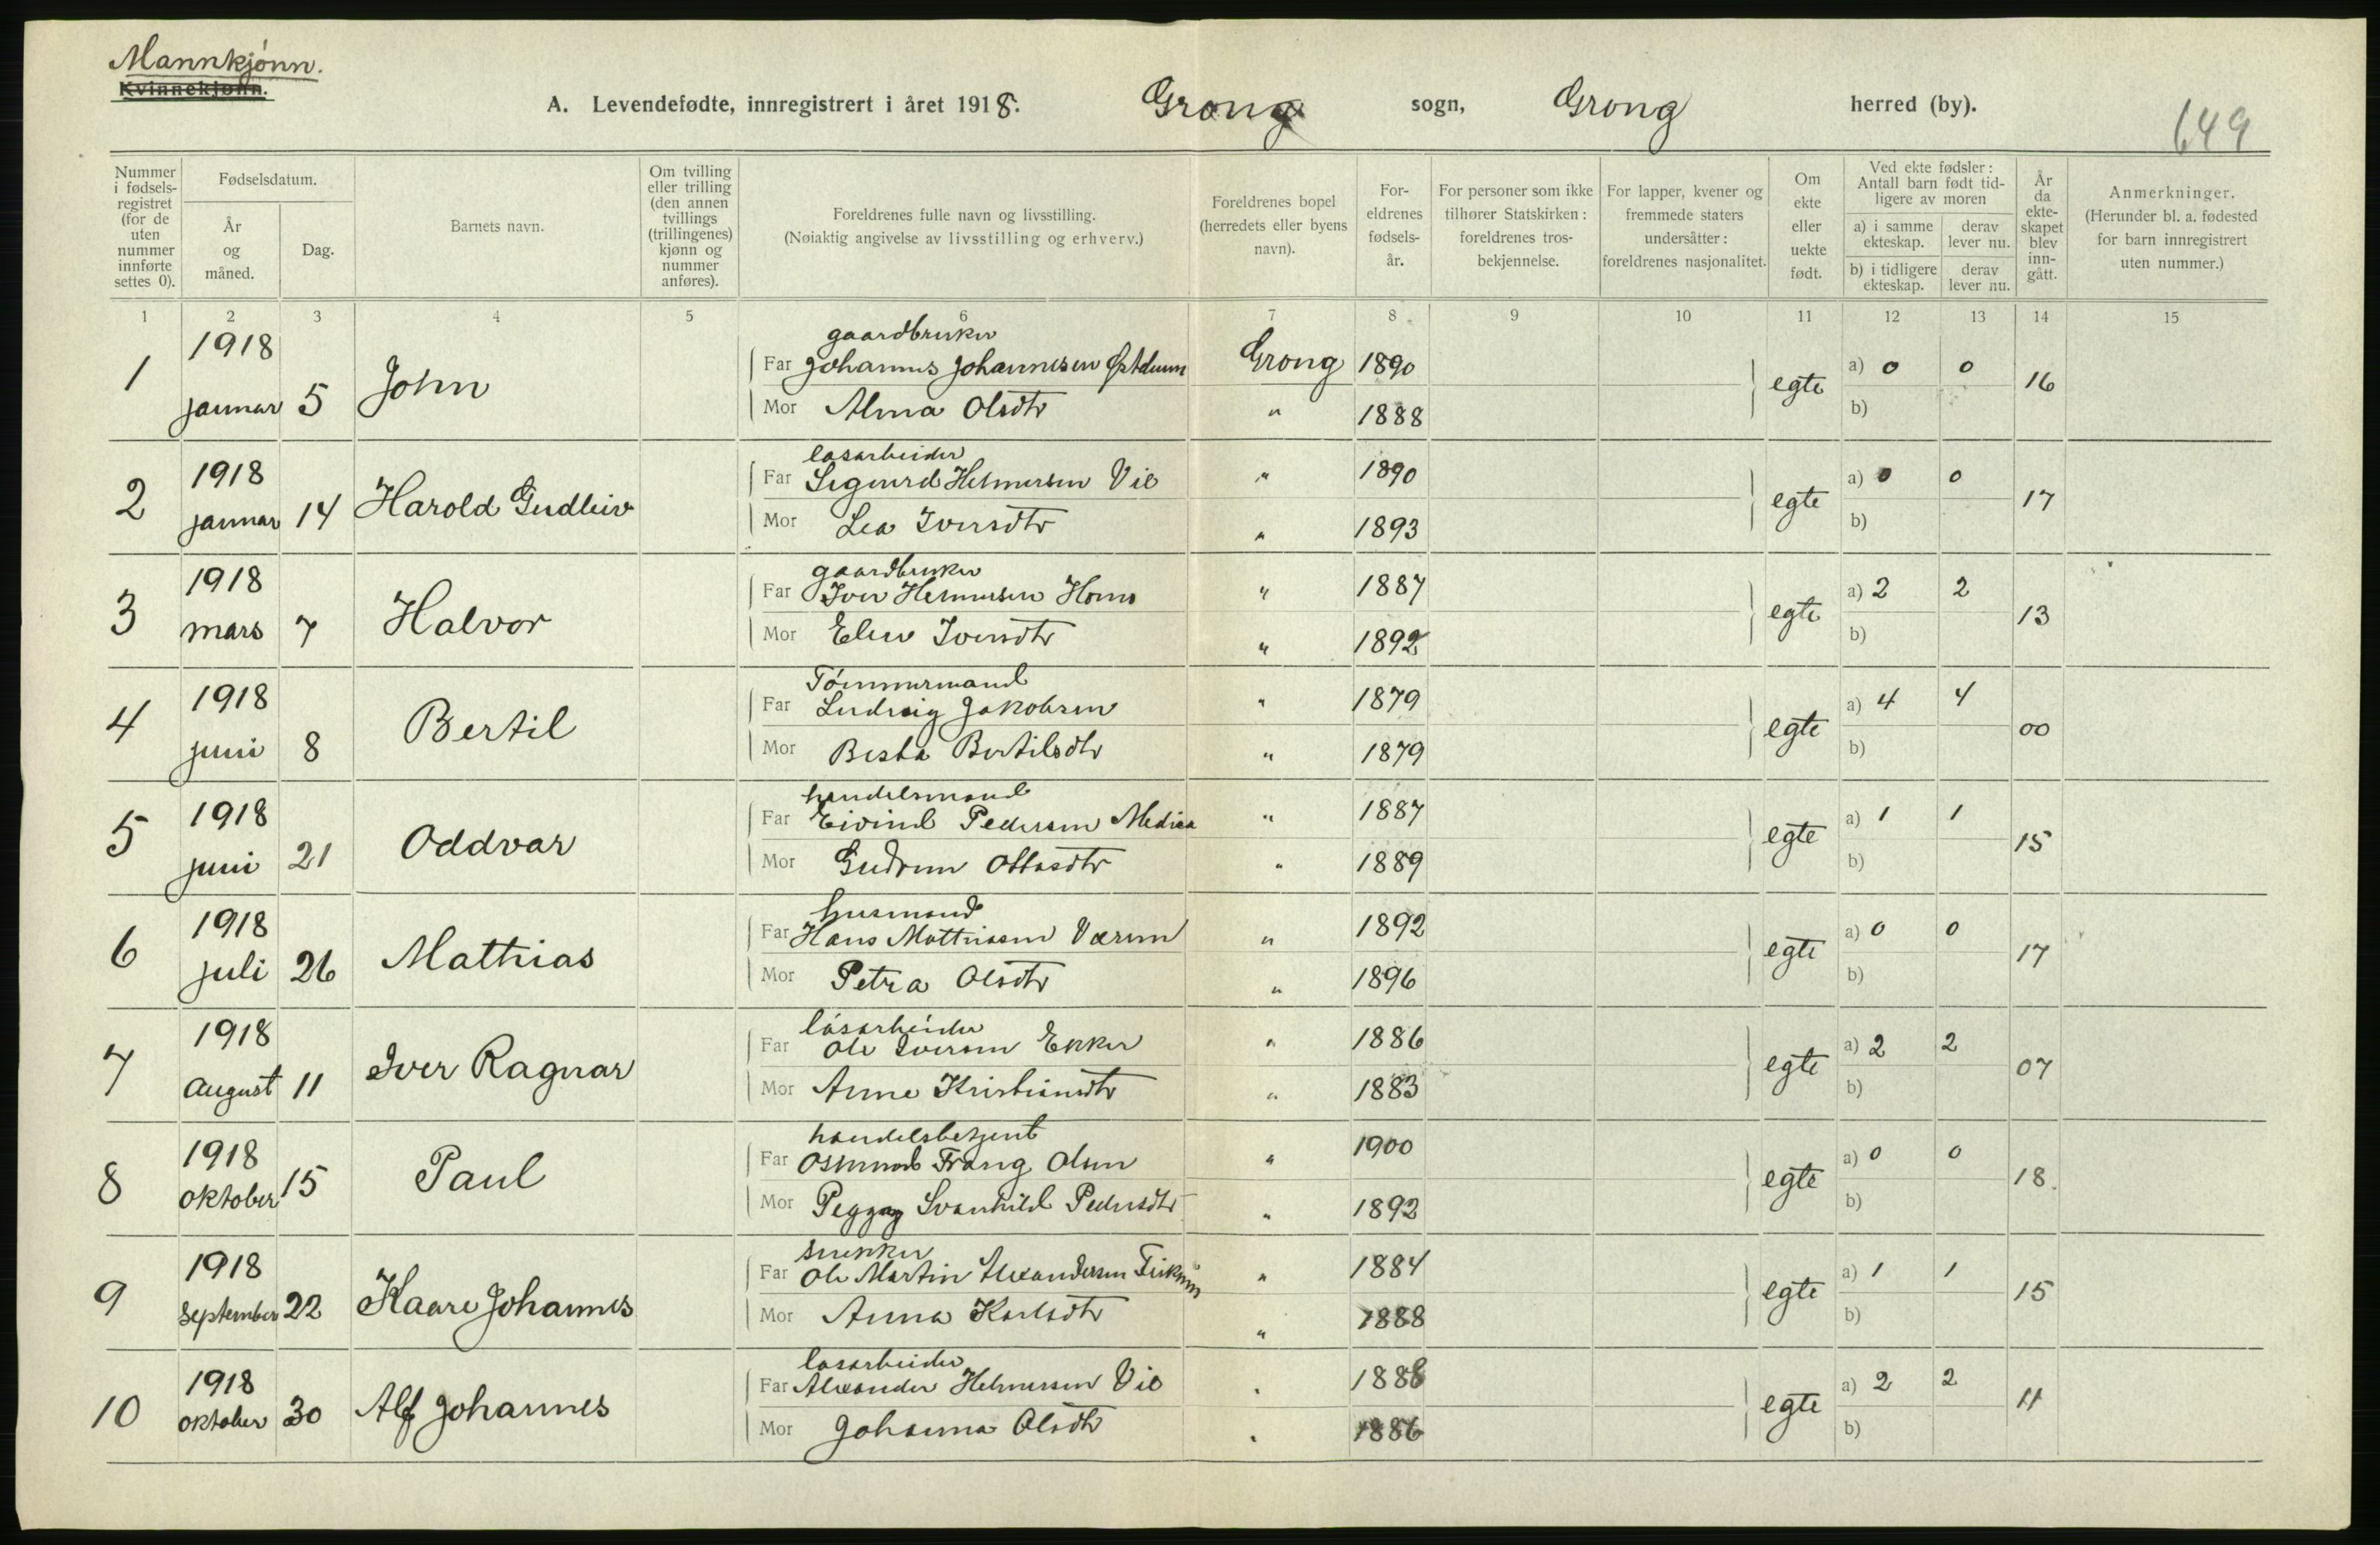 Mannkjønn.
Kvinnekjønn.
A. Levendefødte, innregistrert i året 1918. Grong sogn, Grong herred (by). 649
Nummer i fødselsregistret (for de uten nummer innførte settes 0).
Fødselsdatum.
År og måned.
Dag.
Barnets navn.
Om tvilling eller trilling (den annen tvillings (trillingenes) kjønn og nummer anføres).
Foreldrenes fulle navn og livsstilling.
(Nøiaktig angivelse av livsstilling og erhverv.)
Foreldrenes bopel (herredets eller byens navn).
Foreldrenes fødselsår.
For personer som ikke tilhører Statskirken: foreldrenes trosbekjennelse.
For lapper, kvener og fremmede staters undersåtter: foreldrenes nasjonalitet.
Om ekte eller uekte født.
Ved ekte fødsler: Antall barn født tidligere av moren
a) i samme ekteskap. derav lever nu.
b) i tidligere ekteskap. derav lever nu.
År da ekteskapet blev inngått.
Anmerkninger.
(Herunder bl. a. fødested for barn innregistrert uten nummer.)
1 2 3 4 5 6 7 8 9 10 11 12 13 14 15
1 1918 januar 5 John
gaardbruker
Far Johannes Johannesen Grong 1890
Mor Alma Olsdtr " 1888
egte a) 0 0 b) 16
2 1918 januar 14 Harold Gudleiv
løsarbeider
Far Sigurd Helmersen Vie " 1890
Mor Lea Iversdtr " 1893
egte a) 0 0 b) 17
3 1918 mars 7 Halvor
gaardbruker
Far Iver Helmersen " 1887
Mor Elen Iversdtr " 1892
egte a) 2 2 b) 13
4 1918 juni 8 Bertil
Tømmermand
Far Ludvig Jakobsen " 1879
Mor Bertilsdtr " 1879
egte a) 4 4 b) 00
5 1918 juni 21 Oddvar
handelsmand
Far Eivind Pedersen " 1887
Mor Gudrun Ottosdtr " 1889
egte a) 1 1 b) 15
6 1918 juli 26 Mathias
husmand
Far Hans Mathiasen Værum " 1892
Mor Petra Olsdtr " 1896
egte a) 0 0 b) 17
7 1918 August 11 Iver Ragnar
løsarbeider
Far Ole Iversen Ekker " 1886
Mor Anne Kristiansdtr " 1883
egte a) 2 2 b) 07
8 1918 oktober 15 Paul
handelsbetjent
Far Osmund Olsen " 1900
Mor Peggy Svanhild Pedersdtr " 1892
egte a) 0 0 b) 18.
9 1918 september 22 Kaare Johannes
snekker
Far Ole Martin Alexandersen " 1884
Mor Anna Karlsdtr " 1888
egte a) 1 1 b) 15
10 1918 oktober 30 Alf Johannes
løsarbeider
Far Alexander Helmersen Vie " 1888
Mor Johanna Olsdtr " 1886
egte a) 2 2 b) 11